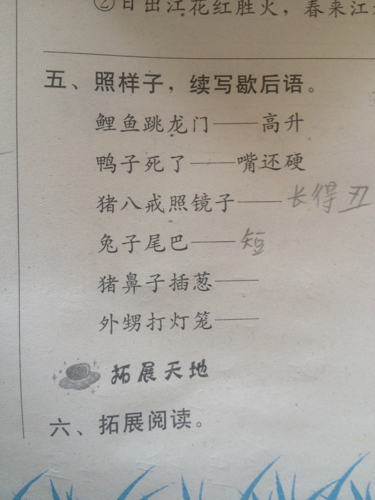 ②日出江花红胜火，春来江
五、照样子，续写歇后语。
鲤鱼跳龙门——高升
鸭子死了——嘴还硬
猪八戒照镜子——长得丑
兔子尾巴——短
猪鼻子插葱——
外甥打灯笼——
拓展天地
六、拓展阅读。